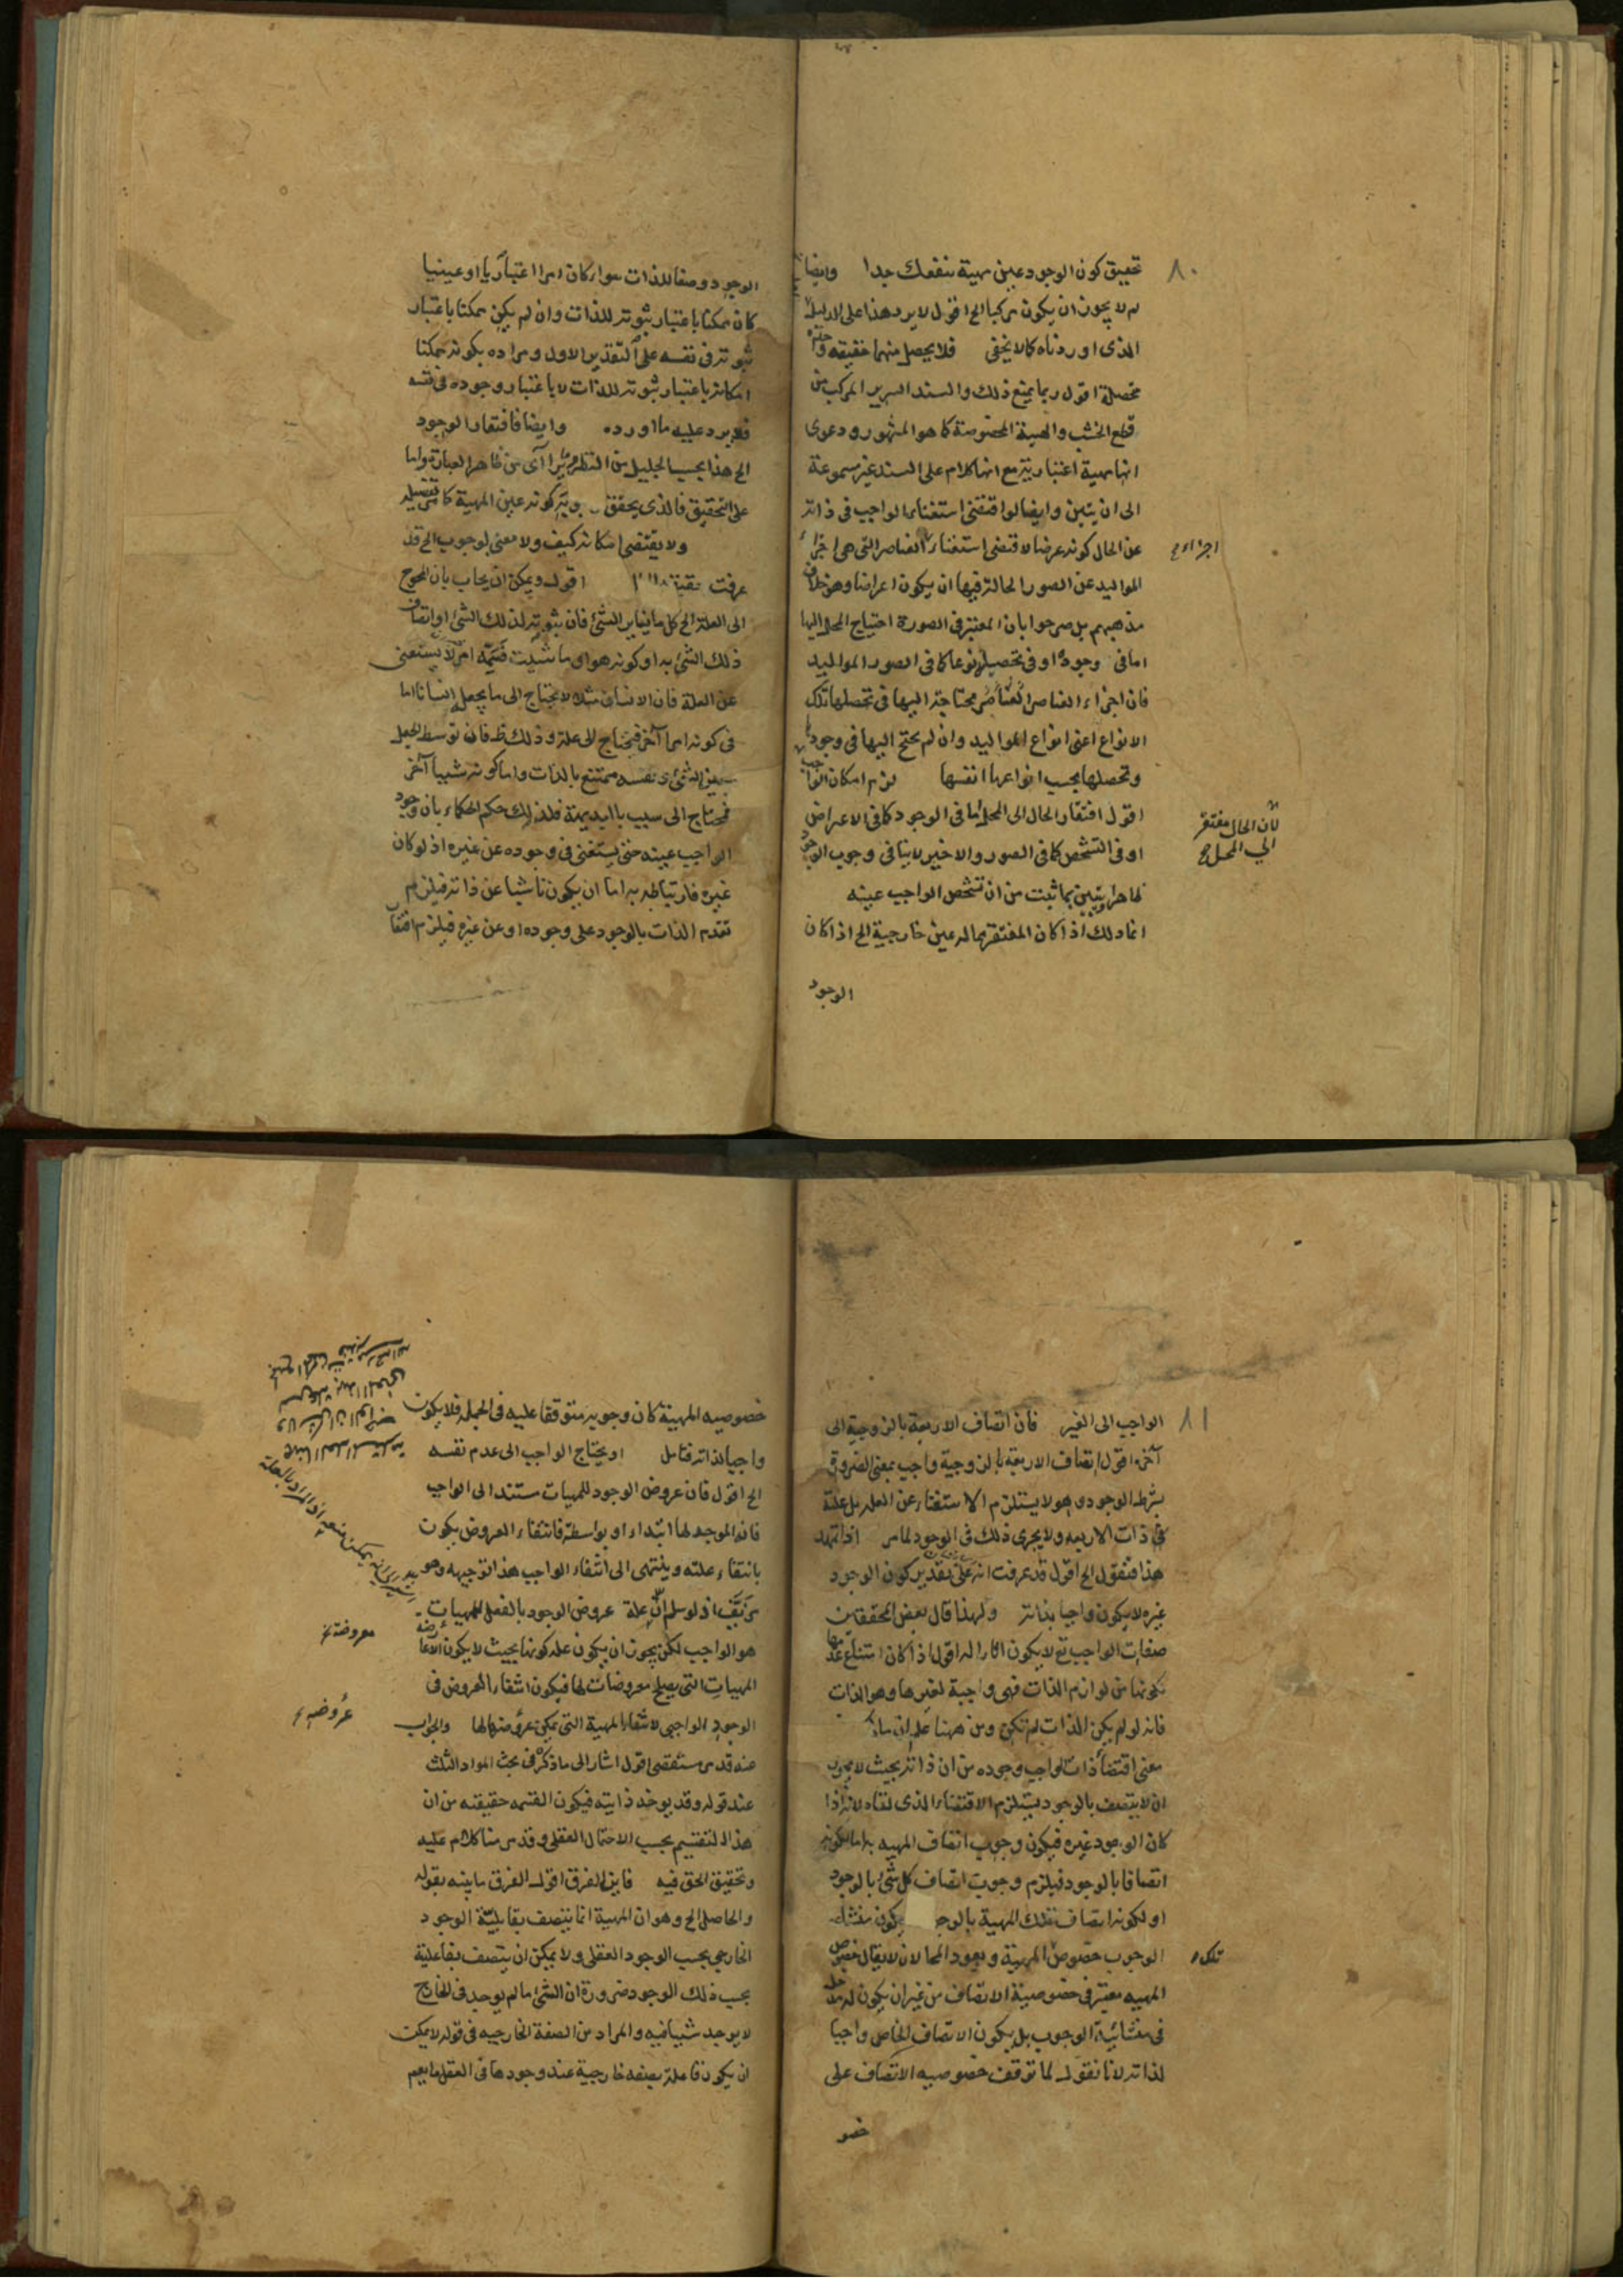 ٨٠
تحقيق كون الوجود عين مهية ينفعك جدا وايضا
لم لا يجوز ان يكون مركبا الخ اقول لا يرد هذا على الدليل
الذى اوردناه كما لا يخفى فلا يحصل منهما حقيقة واحدة
محصلة اقول ربما يمنع ذلك والسند السرير المركب من
قطع الخشب والهيئة المخصوصة كما هو المشهور ودعوى
انها مهية اعتبارية مع انها كلام على السند غير مسموعة
الى ان يتبين وايضا لو اقتضى استغناء الواجب فى ذاته
عن الحال كونه عرضا لاقتضى استغناء العناصر التى هى اجزاء
اجزاء
المواليد عن الصور الحالة فيها ان يكون اعراضا وهو خلاف
مذهبهم بل صرحوا بان المعتبر فى الصورة احتياج المحل اليها
اما فى وجوده او فى تحصيله نوعا كما فى الصور المواليد
فان اجزاء العناصر محتاجة اليها فى تحصلها تلك
الانواع اعنى انواع المواليد وان لم يحتج اليها فى وجودها
وتحصلها بحسب انواعها انفسها لزم امكان الواجب
اقول افتقار الحال الى المحل اما فى الوجود كما فى الاعراض
لان الحال مفتقر
الى المحل
او فى التشخص كما فى الصور والاخير لا ينافى وجوب الوجود
ظاهرا ويتبين بما ثبت من ان تشخص الواجب عينه
انما ذلك اذا كان المفتقر مما له عين خارجية الخ اذا كان
الوجود
الوجود وصفا للذات سواء كان امرا اعتباريا او عينيا
كان ممكنا باعتبار ثبوته للذات وان لم يكن ممكنا باعتبار
ثبوته فى نفسه على التقدير الاول ومراده بكونه ممكنا
امكانه باعتبار ثبوته للذات لا باعتبار وجوده فى نفسه
فلا يرد عليه ما اورده وايضا فافتقار الوجود
الخ هذا بحسب الجليل من النظر وما يتراآى من ظاهر العبارة واما
على التحقيق فالذى يحقق كونه عين المهية كما مر تفصيله
ولا يقتضى امكانه كيف ولا معنى لوجوب الخ قد
عرفت اقول ويمكن ان يجاب بان المحوج
الى العلة الخ كل ما يغاير الشئ فان ثبوته لذلك الشئ او اتصاف
ذلك الشئ به او كونه هو او ما شئت فسمه امر لا يستغنى
عن العلة فان الانسان مثلا لا يحتاج الى ما يجعل انسانا اما
فى كونه امرا آخر فيحتاج الى علة وذلك ظ فان توسط الجعل
بين الشئ ونفسه ممتنع بالذات واما كونه شيئا آخر
فيحتاج الى سبب بالبديهة فلذلك حكم الحكماء بان وجود
الواجب عينه حتى يستغنى فى وجوده عن غيره اذ لو كان
غيره فارتباطه به اما ان يكون ناشيا عن ذاته فيلزم
تقدم الذات بالوجود على وجوده او عن غيره فيلزم افتقار
٨١
الواجب الى الغير فان اتصاف الاربعة بالزوجية الى
آخره اقول اتصاف الاربعة بالزوجية واجب بمعنى الضرورة
بشرط الوجود وهو لا يستلزم الاستغناء عن العلة بل علته
فى ذات الاربعة ولا يجرى ذلك فى الوجود لما مر اذا تمهد
هذا فنقول الخ اقول قد عرفت انه على تقدير كون الوجود
غيره لا يكون واجبا بذاته ولهذا قال بعض المحققين
صفات الواجب تع لا يكون اثارا له اقول اذا كان امتناع عدمها
لكونها من لوازم الذات فهى واجبة لغيرها وهو الذات
فانه لو لم يكن الذات لم تكن ومن ههنا علم ان ما ذكر
معنى اقتضاء ذات الواجب وجوده من ان ذاته بحيث لا يجوز
ان لا يتصف بالوجود يستلزم الاقتضاء الذى نفاه لانه اذا
كان الوجود غيره فيكون وجوب اتصاف المهية به اما لكونه
اتصافا بالوجود فيلزم وجوب اتصاف كل شئ بالوجود
او لكونه اتصاف تلك المهية بالوجـ يكون منشاء
الوجوب خصوص المهية ويعود المحال لان لا يقال خصوص
تلك
المهية معتبر فى خصوصية الاتصاف من غير ان يكون له مدخل
فى منشائية الوجوب بل يكون الاتصاف الخاص واجبا
لذاته لانا نقول لما توقف خصوصية الاتصاف على
خصو
خصوصية المهية كان وجوبه متوقفا عليه فى الجملة فلا يكون
واجبا لذاته فتامل او يحتاج الواجب الى عدم نفسه
الخ اقول فان عروض الوجود للمهيات مستند الى الواجب
فانه الموجد لها ابتداء او بواسطة فانتفاء العروض يكون
بانتفاء علته وينتهى الى انتفاء الواجب هذا توجيهه وهو
مزيف اذ لو سلم ان علة عروض الوجود بالفعل للمهيات
هو الواجب لكن يجوز ان يكون علة كونها بحيث لا يكون الا عارضة
معروضة
المهيات التى يصلح معروضات لها فيكون انتفاء العروض فى
الوجود الواجبى لانتفاء المهية التى يمكن عروضها لها والجواب
عروضه
عنه قد مر مستقصى اقول اشار الى ما ذكره فى بحث المواد الثلث
عند قوله وقد يوخذ ذاتية فيكون القسمة حقيقة من ان
هذا التقسيم بحسب الاحتمال العقلى وقد مر منا كلام عليه
وتحقيق الحق فيه فاين الفرق اقول الفرق ما بينه بقوله
والحاصل الخ وهو ان المهية انما يتصف بقابلية الوجود
الخارجى بحسب الوجود العقلى ولا يمكن ان يتصف بفاعلية
بحسب ذلك الوجود ضرورة ان الشئ ما لم يوجد فى الخارج
لا يوجد شيئا فيه والمراد من الصفة الخارجية فى قوله لا يمكن
ان يكون فاعلة بصفة خارجية عند وجودها فى العقل ما يعم